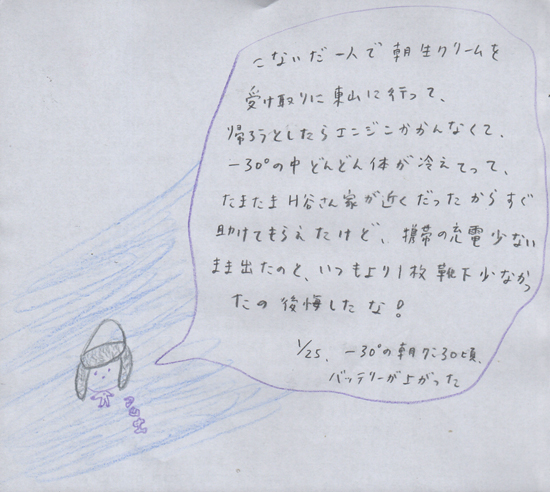 こないだ一人で朝生クリームを
受け取りに東山に行って、
帰ろうとしたらエンジンかかんなくて、
-30°の中どんどん体が冷えてって、
たまたまH谷さん家が近くだったからすぐ
助けてもらえたけど、携帯の充電少ない
まま出たのと、いつもより1枚靴下少なかっ
たの後悔したな!
1/25. -30°の朝7:30頃、
バッテリーが上がった